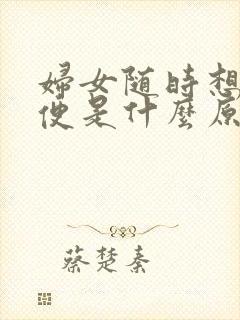 婦女随時想
便是什麼原
蔡楚秦